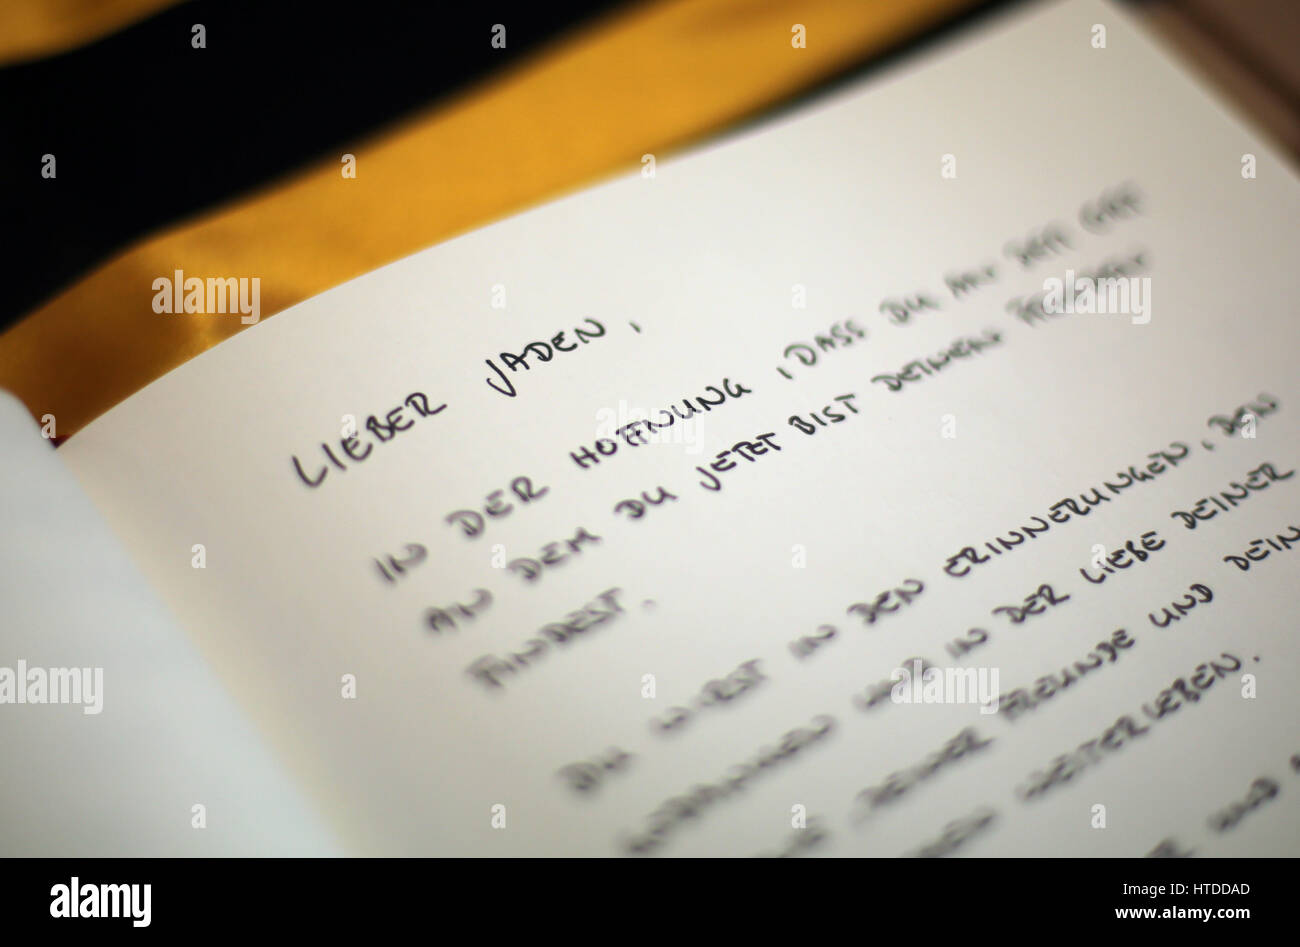 LIEBER JADEN,
IN DER HOFFNUNG, DASS DU AN DEM ORT
AN DEM DU JETZT BIST DEINEN FRIEDEN
FINDEST.
DU WIRST IN DEN ERINNERUNGEN, DEN
UND IN DER LIEBE DEINER
DEINER FREUNDE UND DEIN
WEITERLEBEN.
UND
alamy
alamy
alamy
alamy
alamy
alamy stock photo
HTDDAD
www.alamy.com